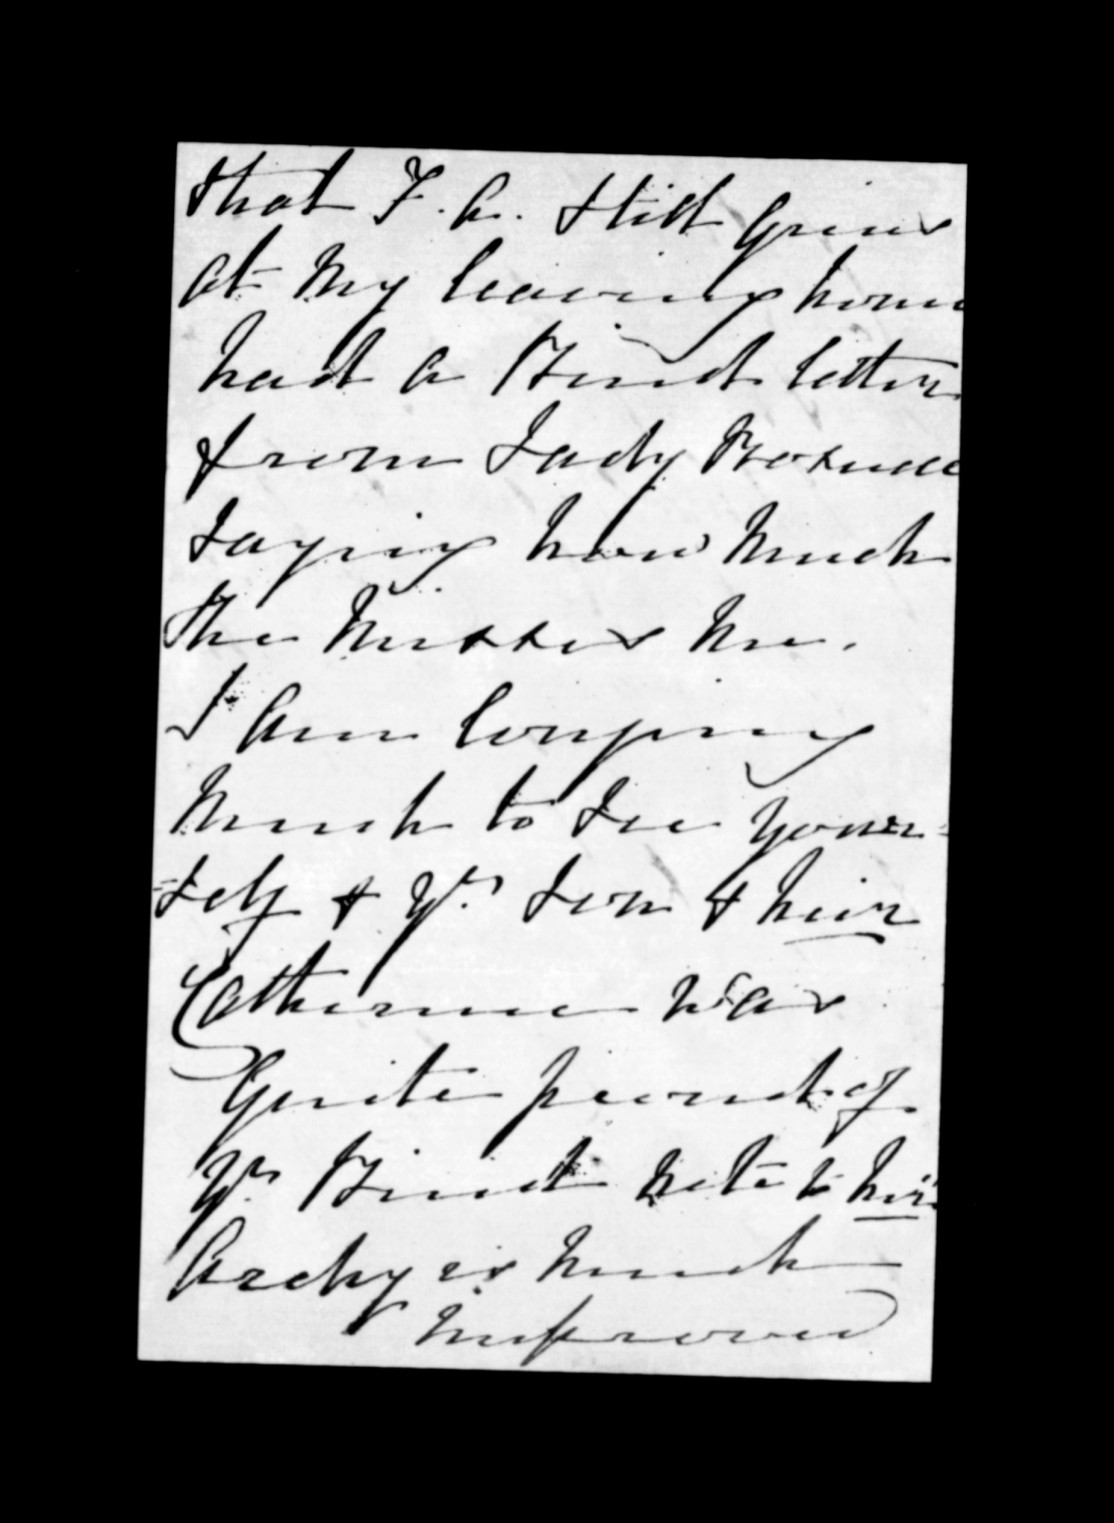 that F. A. still grieves
at my leaving home
had a kind letter
from Lady
saying how much
the misses me.
I am longing
much to see your=
=self & yr. son & heir
Catherine was
Quite proud of
yr kind note to her
Archy is much
improved